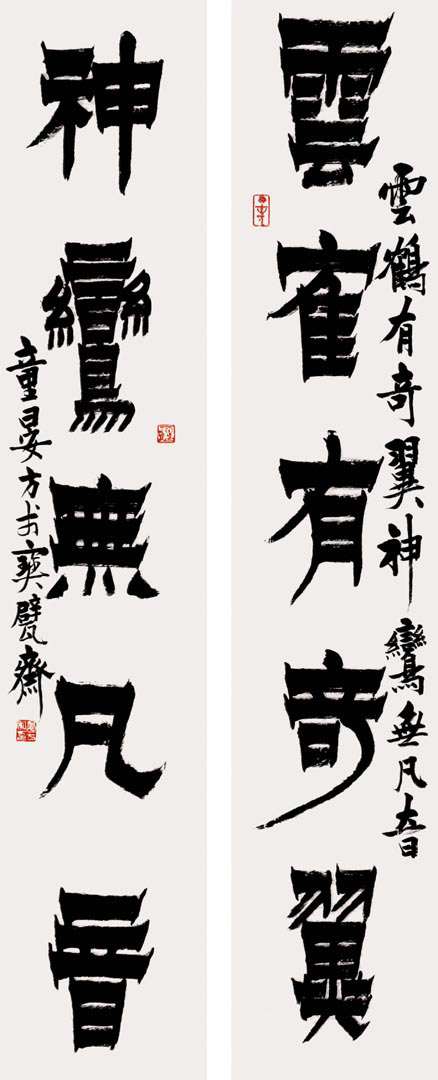 雲鶴有奇翼神鸞無凡音
雲隺有奇翼
神鸞無凡音
童晏方於寶甓齋